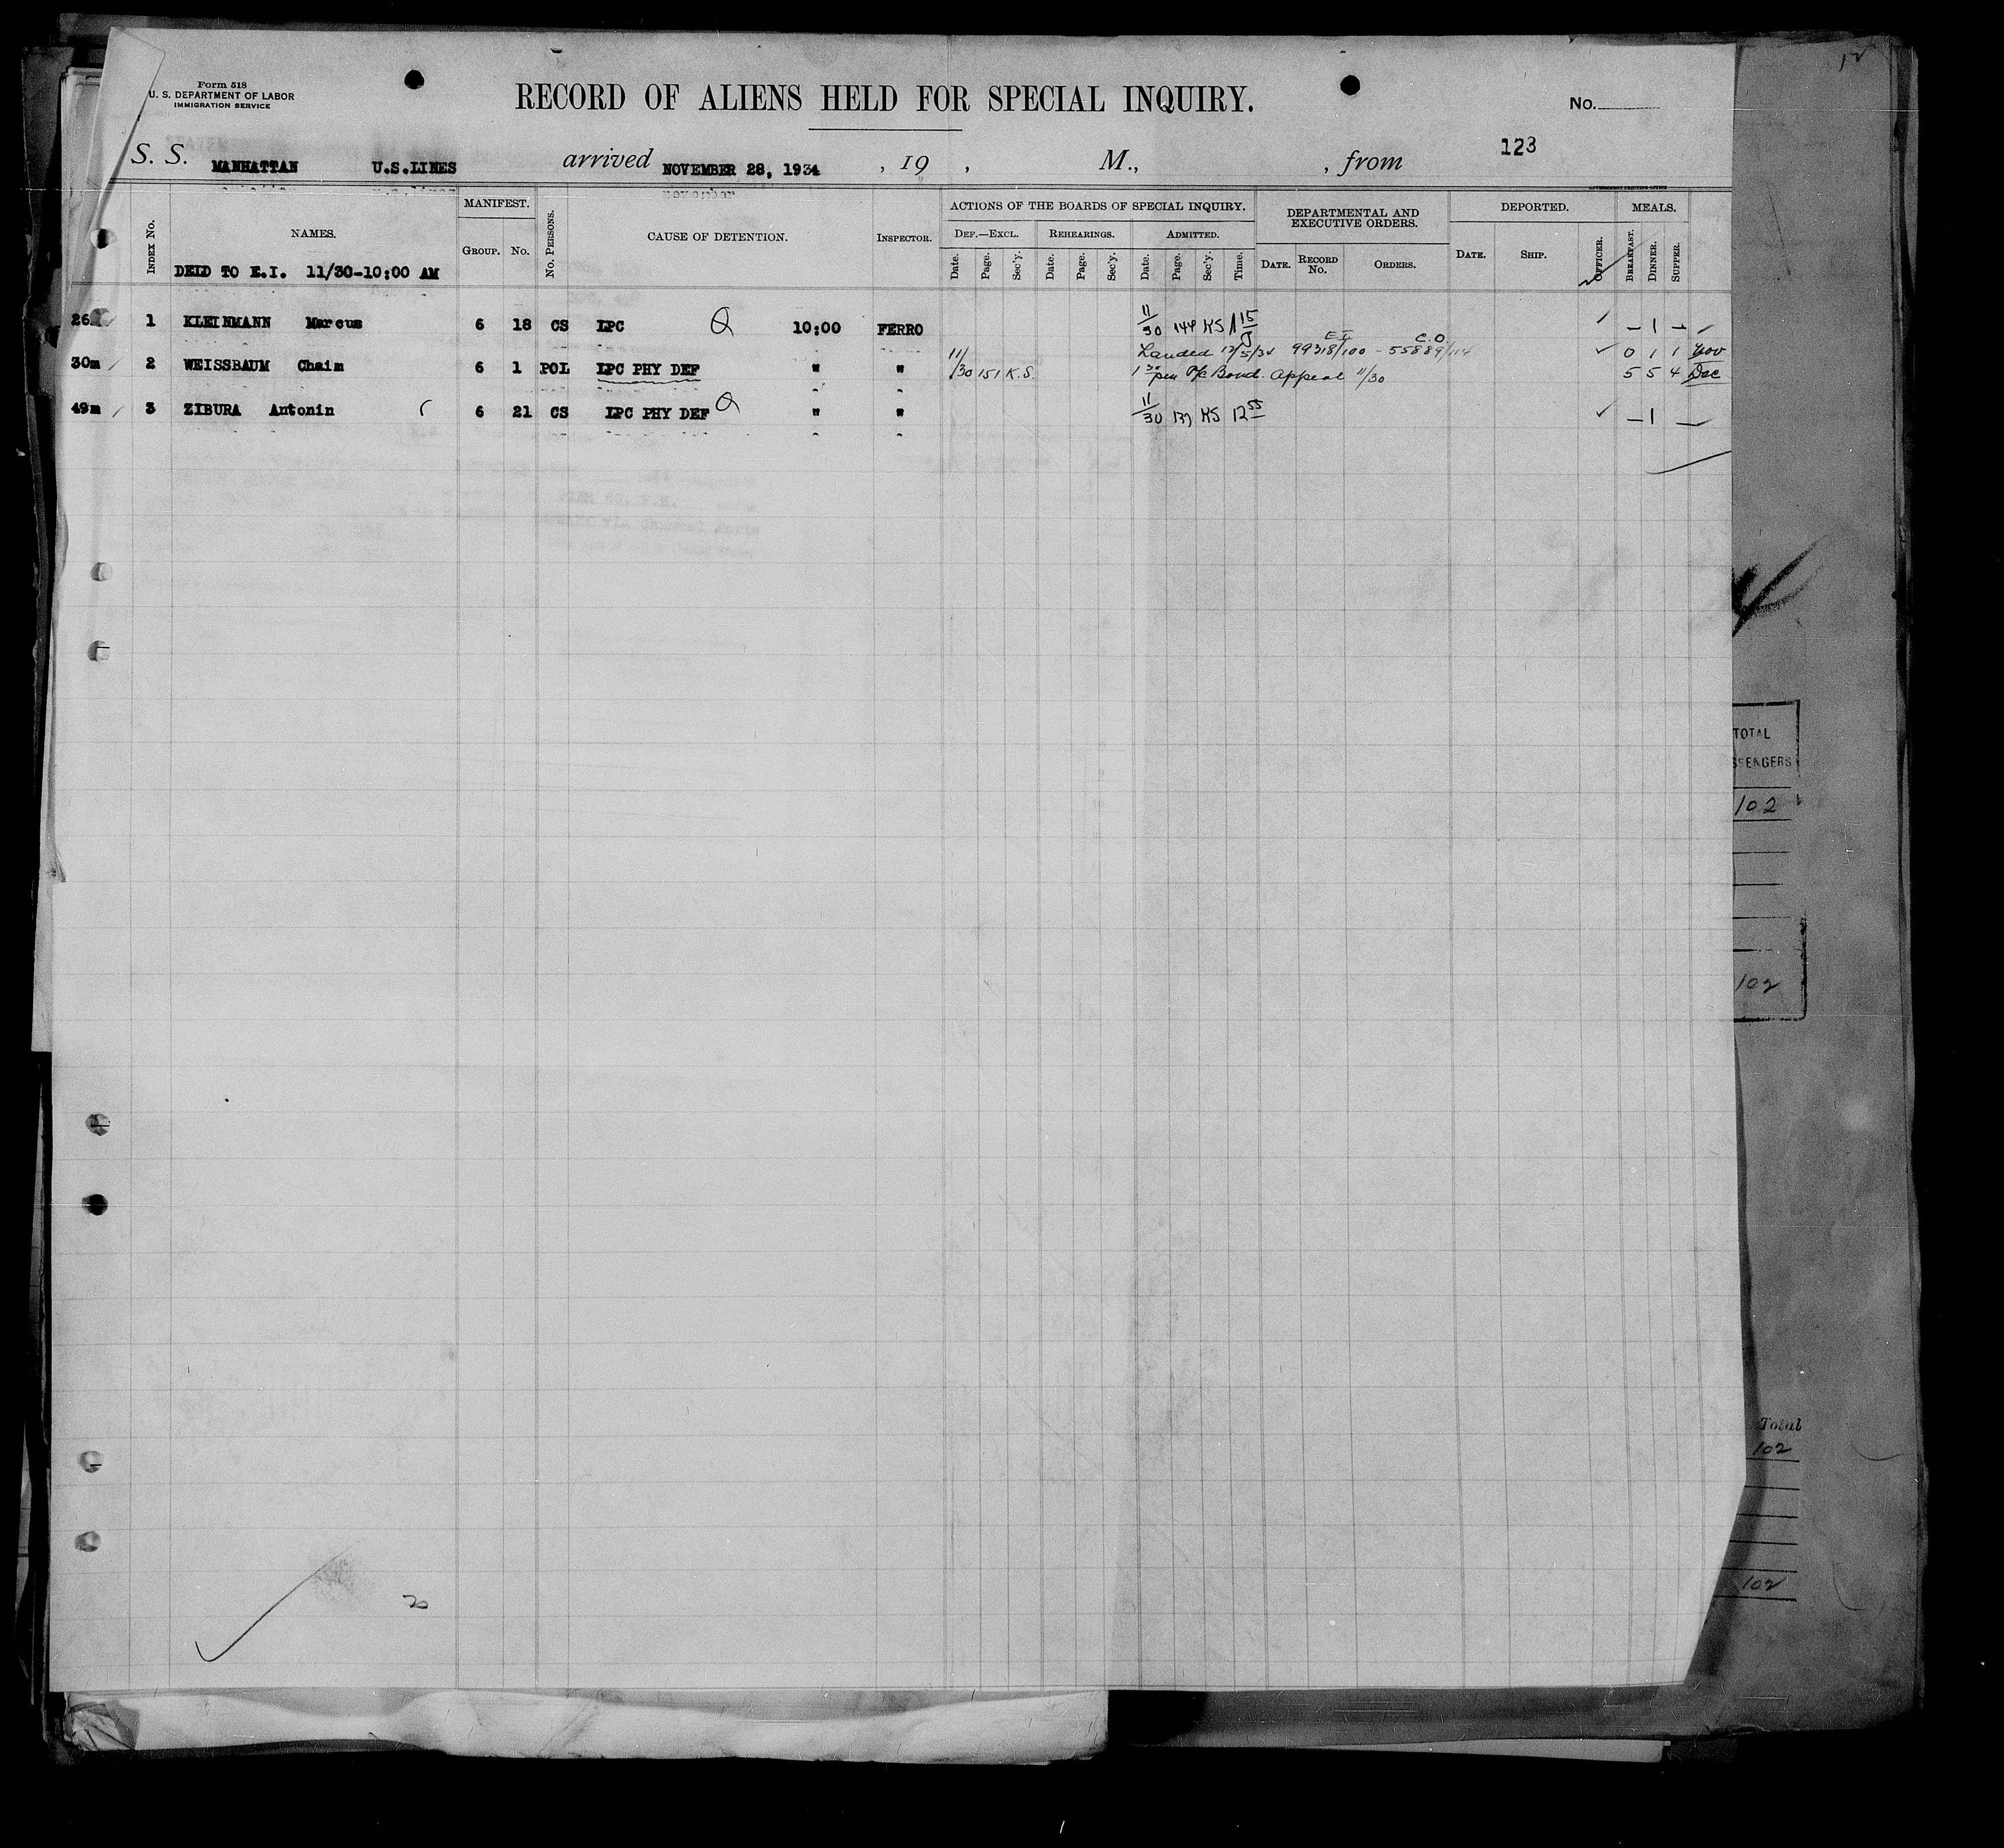 12
Form 518
U. S. DEPARTMENT OF LABOR
IMMIGRATION SERVICE
RECORD OF ALIENS HELD FOR SPECIAL INQUIRY.
No.
123
S. S. MANHATTAN U.S.LINES arrived NOVEMBER 28, 1934 , 19 , M., , from
INDEX No. NAMES. MANIFEST. GROUP. No. No. PERSONS. CAUSE OF DETENTION. INSPECTOR. ACTIONS OF THE BOARDS OF SPECIAL INQUIRY. DEPARTMENTAL AND EXECUTIVE ORDERS. DEPORTED. MEALS.
DEF.—EXCL. REHEARINGS. ADMITTED.
Date. Page. Sec'y. Date. Page. Sec'y. Date. Page. Sec'y. Time. DATE. RECORD No. ORDERS. DATE. SHIP. OFFICER. BREAKFAST. DINNER. SUPPER.
DELD TO E.I. 11/30-10:00 AM
26 1 KLEINMANN Marcus 6 18 CS LPC 10:00 FERRO 11/30 144 KS 1 15 – 1 –
30m 2 WEISSBAUM Chaim 6 1 POL LPC PHY DEF " " 11/30 151 K.S. Landed 12/5/34 E.I. 99318/100 - C.O. 55889/114 0 1 1 Nov
1 30 pm P/c Bond. Appeal 11/30 5 5 4 Dec
49m 3 ZIBURA Antonin 6 21 CS LPC PHY DEF " " 11/30 137 KS 12 55 – 1 –
TOTAL
SSENGERS
102
102
Total
102
102